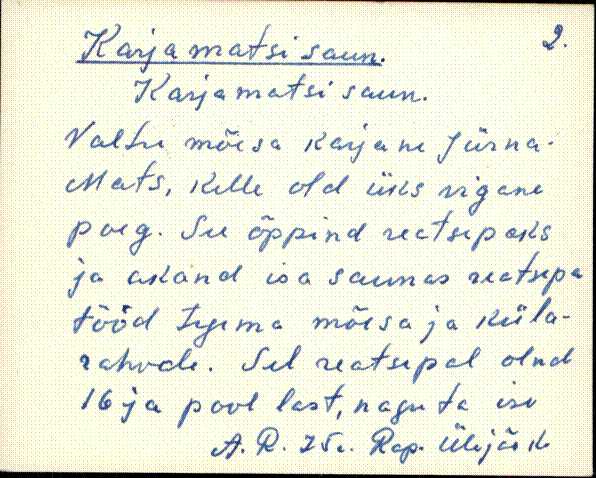 Karjamatsi saun.
2.
Karjamatsi saun.
Valtu mõisa karjane Jürna-
Mats, kelle old üks vigane
poeg. See õppind reatsepaks
ja akand isa saunas reatsepa
tööd tegema mõisa ja küla-
rahvale. Sel reatsepal olnd
16 ja pool last, nagu ta ise
A. R. 75a. Rap.